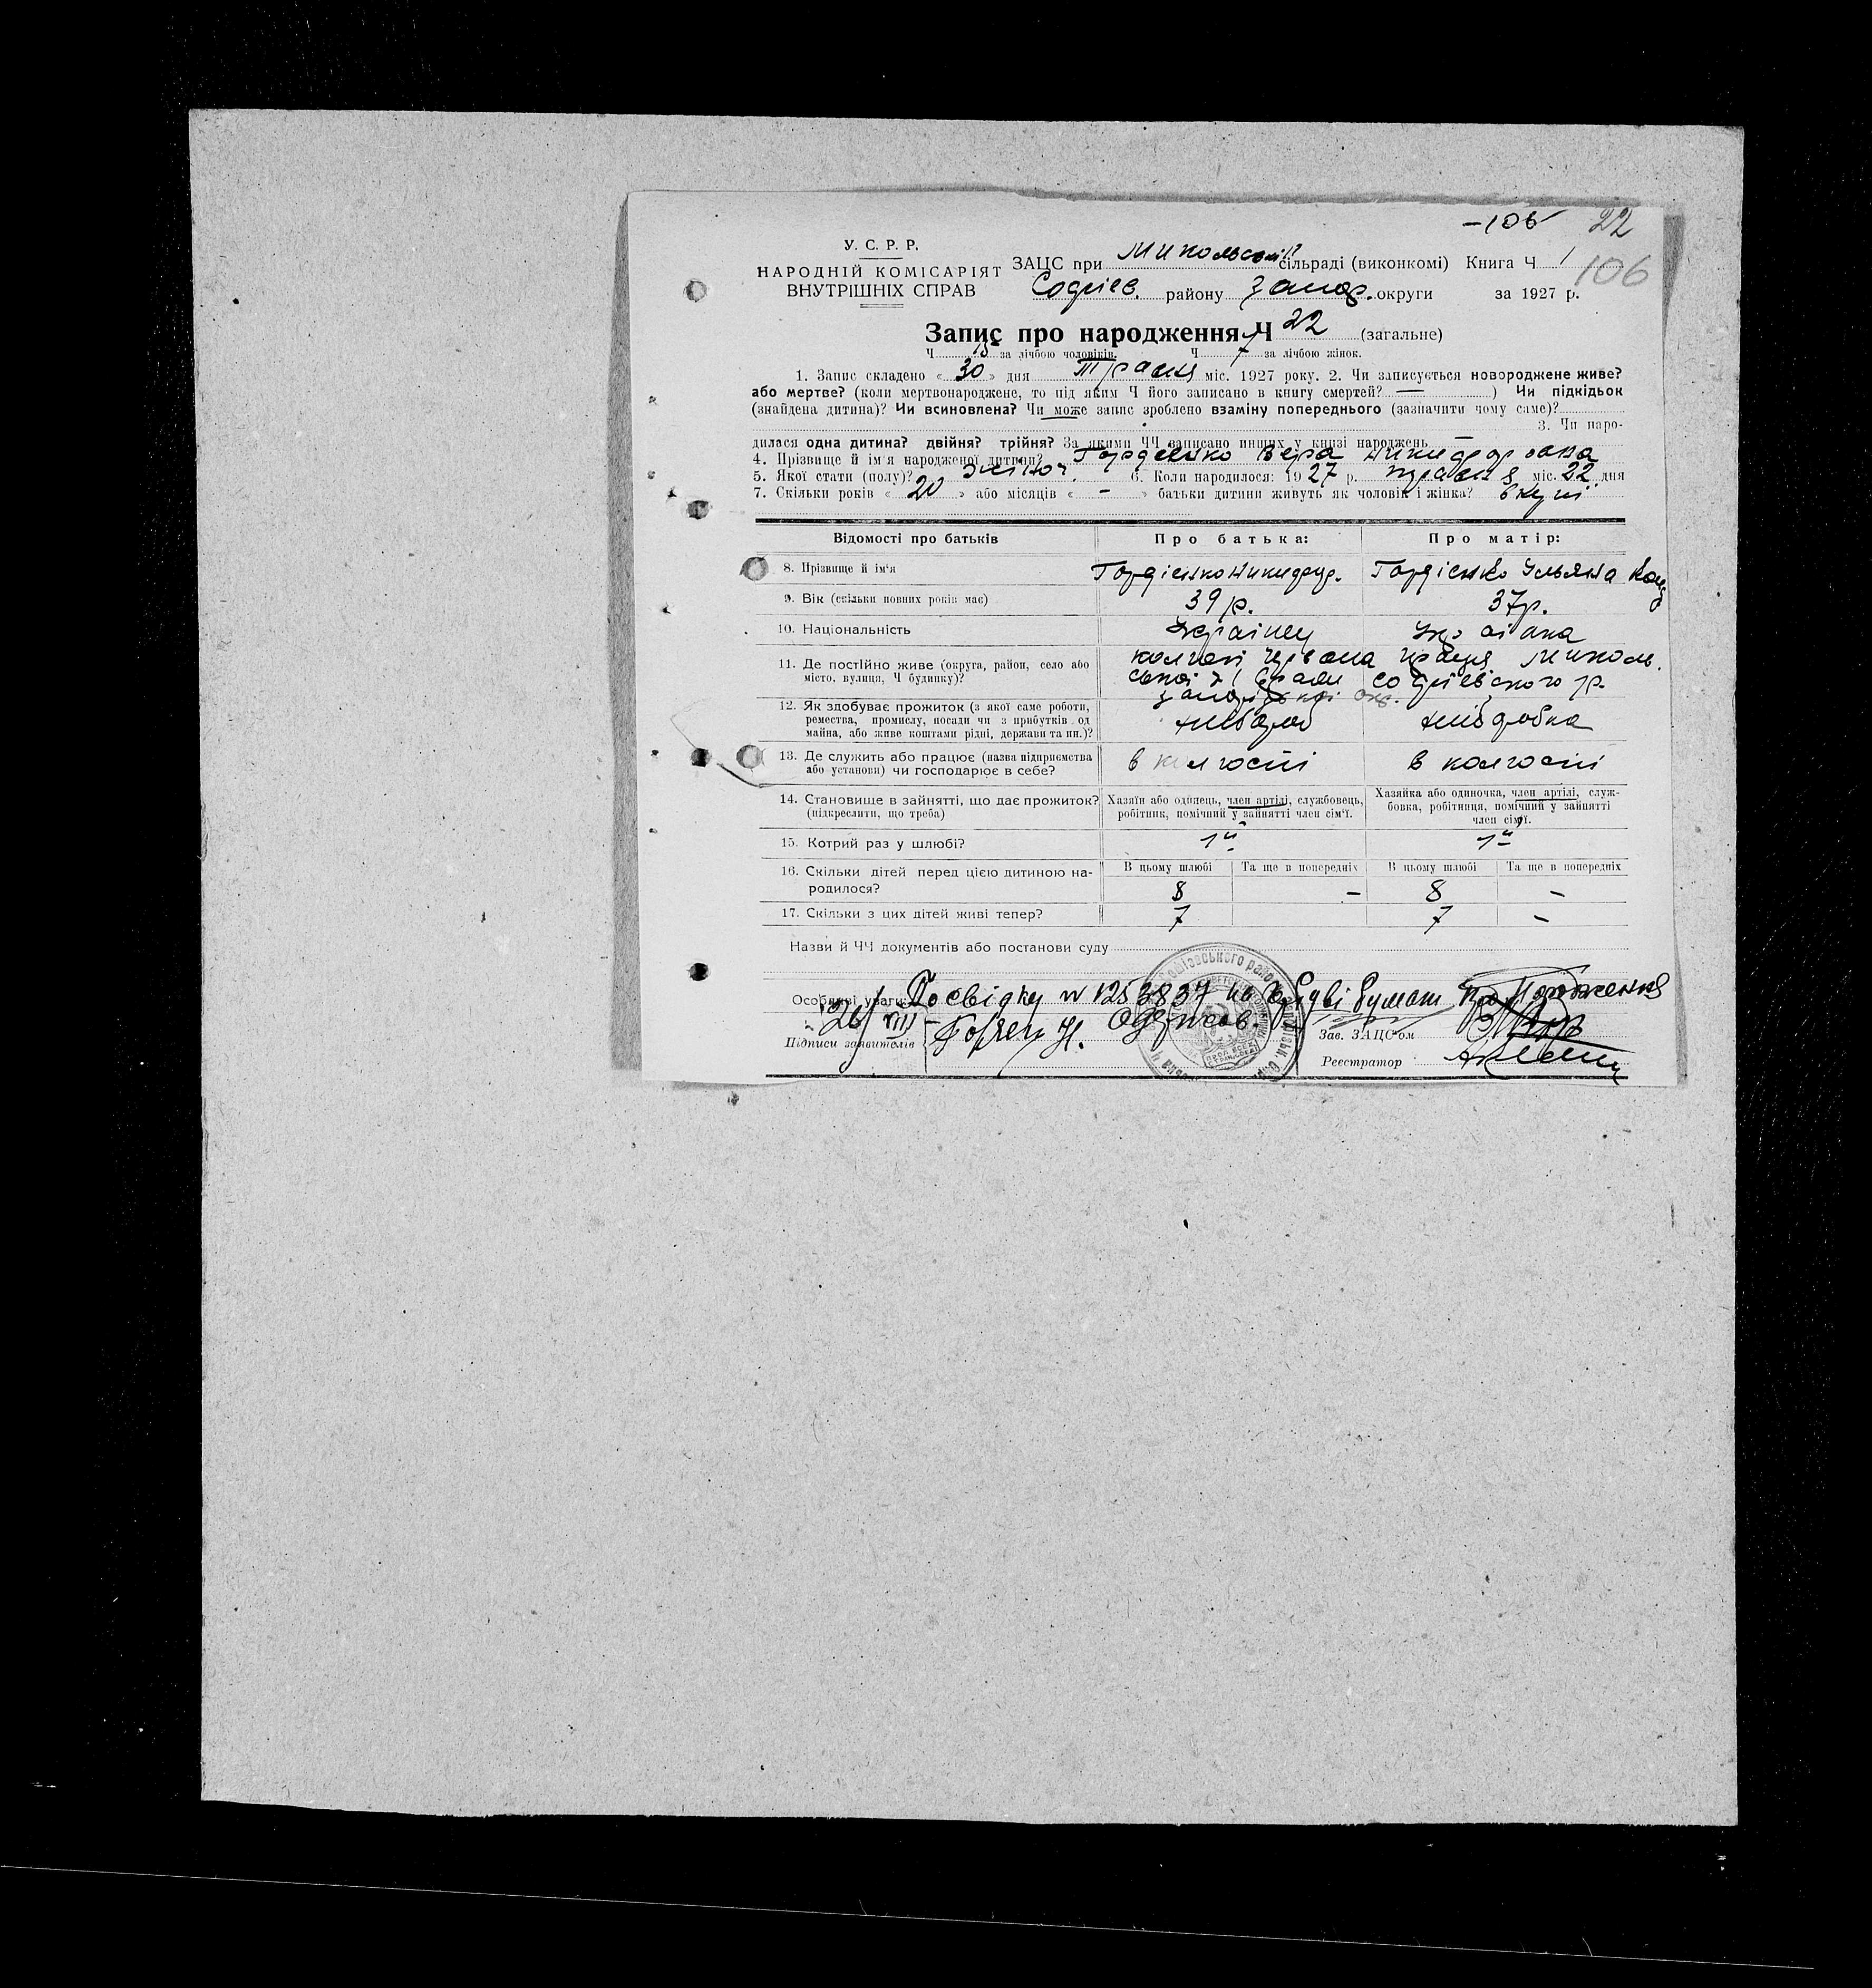 -106 22
У. С. Р. Р.
НАРОДНІЙ КОМІСАРІЯТ
ВНУТРІШНІХ СПРАВ
ЗАЦС при Микольській сільраді (виконкомі) Книга Ч 1
106
Софіев. району Запор. округи за 1927 р.
Запис про народження Ч 22 (загальне)
Ч 15 за лічбою чоловіків. Ч 7 за лічбою жінок.
1. Запис складено «30» дня Травня міс. 1927 року. 2. Чи записується новороджене живе?
або мертве? (коли мертвонароджене, то під яким Ч його записано в книгу смертей? — ) Чи підкідьок
(знайдена дитина)? Чи всиновлена? Чи може запис зроблено взаміну попереднього (зазначити чому саме)?
3. Чи наро-
дилася одна дитина? двійня? трійня? За якими ЧЧ записано инших у книзі народжень —
4. Прізвище й ім'я народженої дитини? Гордіенко Вера Никифоровна
5. Якої стати (полу)? жіноч. 6. Коли народилося: 1927 р. травня міс. 22 дня
7. Скільки років «20» або місяців « - » батьки дитини живуть як чоловік і жінка? вкупі
Відомості про батьків Про батька: Про матір:
8. Прізвище й ім'я Гордіенко Никифор. Гордіенко Ульяна
9. Вік (скільки повних років має) 39 р. 37р.
10. Національність Українец Українка
11. Де постійно живе (округа, район, село або
місто, вулиця, Ч будинку)?
колгосп Червона праця Миколь.
ської с/ради Софіевского р.
Запорізької окр.
12. Як здобуває прожиток (з якої саме роботи,
ремества, промислу, посади чи з прибутків од
майна, або живе коштами рідні, держави та ин.)?
хлібороб хліборобка
13. Де служить або працює (назва підприємства
або установи) чи господарює в себе?
в колгоспі в колгоспі
14. Становище в зайнятті, що дає прожиток?
(підкреслити, що треба)
Хазяїн або одинець, член артілі, службовець,
робітник, помічний у зайнятті член сім'ї.
Хазяйка або одиночка, член артілі, служ-
бовка, робітниця, помічний у зайнятті
член сім'ї.
15. Котрий раз у шлюбі? 1й 1й
16. Скільки дітей перед цією дитиною на-
родилося?
В цьому шлюбі Та ще в попередніх В цьому шлюбі Та ще в попередніх
8 — 8 —
17. Скільки з цих дітей живі тепер? 7 7 —
Назви й ЧЧ документів або постанови суду
Особливі уваги: Посвідку № 1253837
26/VIII одержав.
Підписи заявителів
Зав. ЗАЦС'ом
Реєстратор